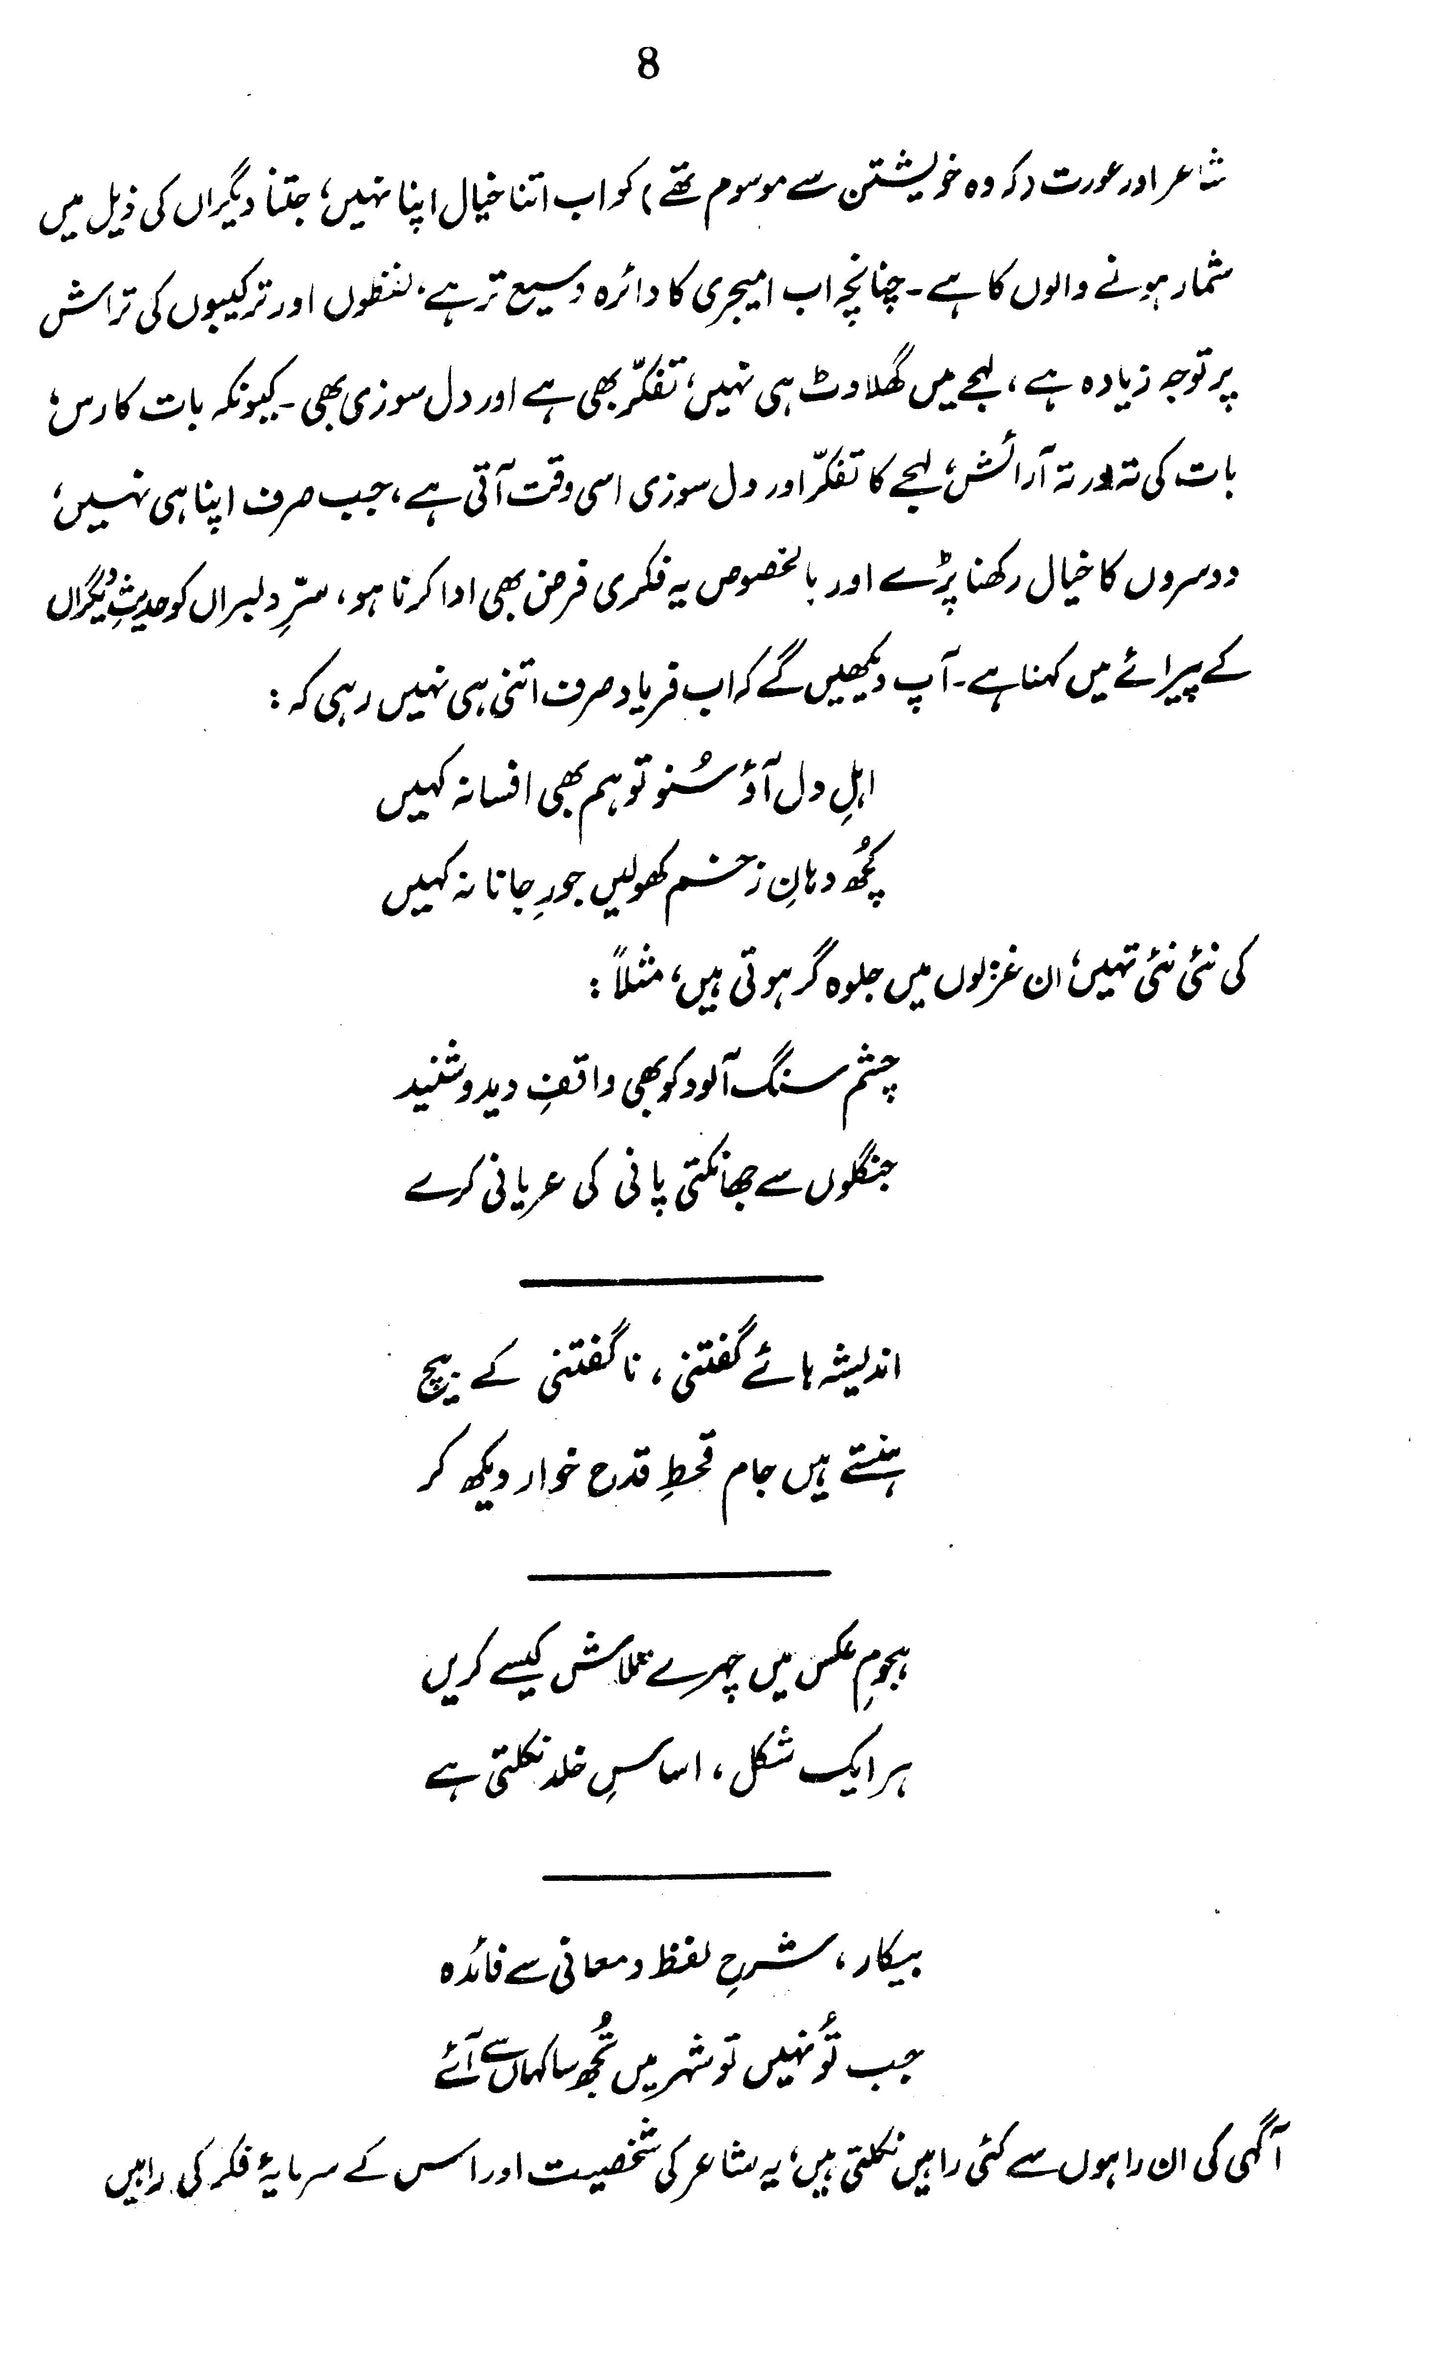 8
شاعر اور عورت (کہ وہ خویشتن سے موسوم تھے) کو اب اتنا خیال اپنا نہیں، جتنا دیگراں کی ذیل میں
شمار ہونے والوں کا ہے۔ چنانچہ اب امیجری کا دائرہ وسیع تر ہے، لفظوں اور ترکیبوں کی تراش
پر توجہ زیادہ ہے، لہجے میں گھلاوٹ ہی نہیں، تفکّر بھی ہے اور دل سوزی بھی۔ کیونکہ بات کا رس،
بات کی تہ در تہ آرائش، لہجے کا تفکّر اور دل سوزی اسی وقت آتی ہے، جب صرف اپنا ہی نہیں،
دوسروں کا خیال رکھنا پڑے اور بالخصوص یہ فکری فرض بھی ادا کرنا ہو، سّرِ دلبراں کو حدیثِ دیگراں
کے پیرائے میں کہنا ہے۔ آپ دیکھیں گے کہ اب فریاد صرف اتنی ہی نہیں رہی کہ :
اہلِ دل آؤ سُنو تو ہم بھی افسانہ کہیں
کُچھ دہانِ زخم کھولیں جورِ جانانہ کہیں
کی نئی نئی تہیں، ان غزلوں میں جلوہ گر ہوتی ہیں، مثلاً :
چشم سنگ آلود کو بھی واقفِ دید و شنید
جنگلوں سے جھانکتی پانی کی عریانی کرے
اندیشہ ہائے گفتنی، ناگفتنی کے بیچ
ہنستے ہیں جام قحطِ قدح خوار دیکھ کر
ہجومِ عکس میں چہرے تلاش کیسے کریں
ہر ایک شکل، اساسِ خلد نکلتی ہے
بیکار، شرحِ لفظ و معانی سے فائدہ
جب تُو نہیں تو شہر میں تُجھ سا کہاں سے آئے
آگہی کی ان راہوں سے کئی راہیں نکلتی ہیں، یہ شاعر کی شخصیت اور اس کے سرمایۂ فکر کی راہیں